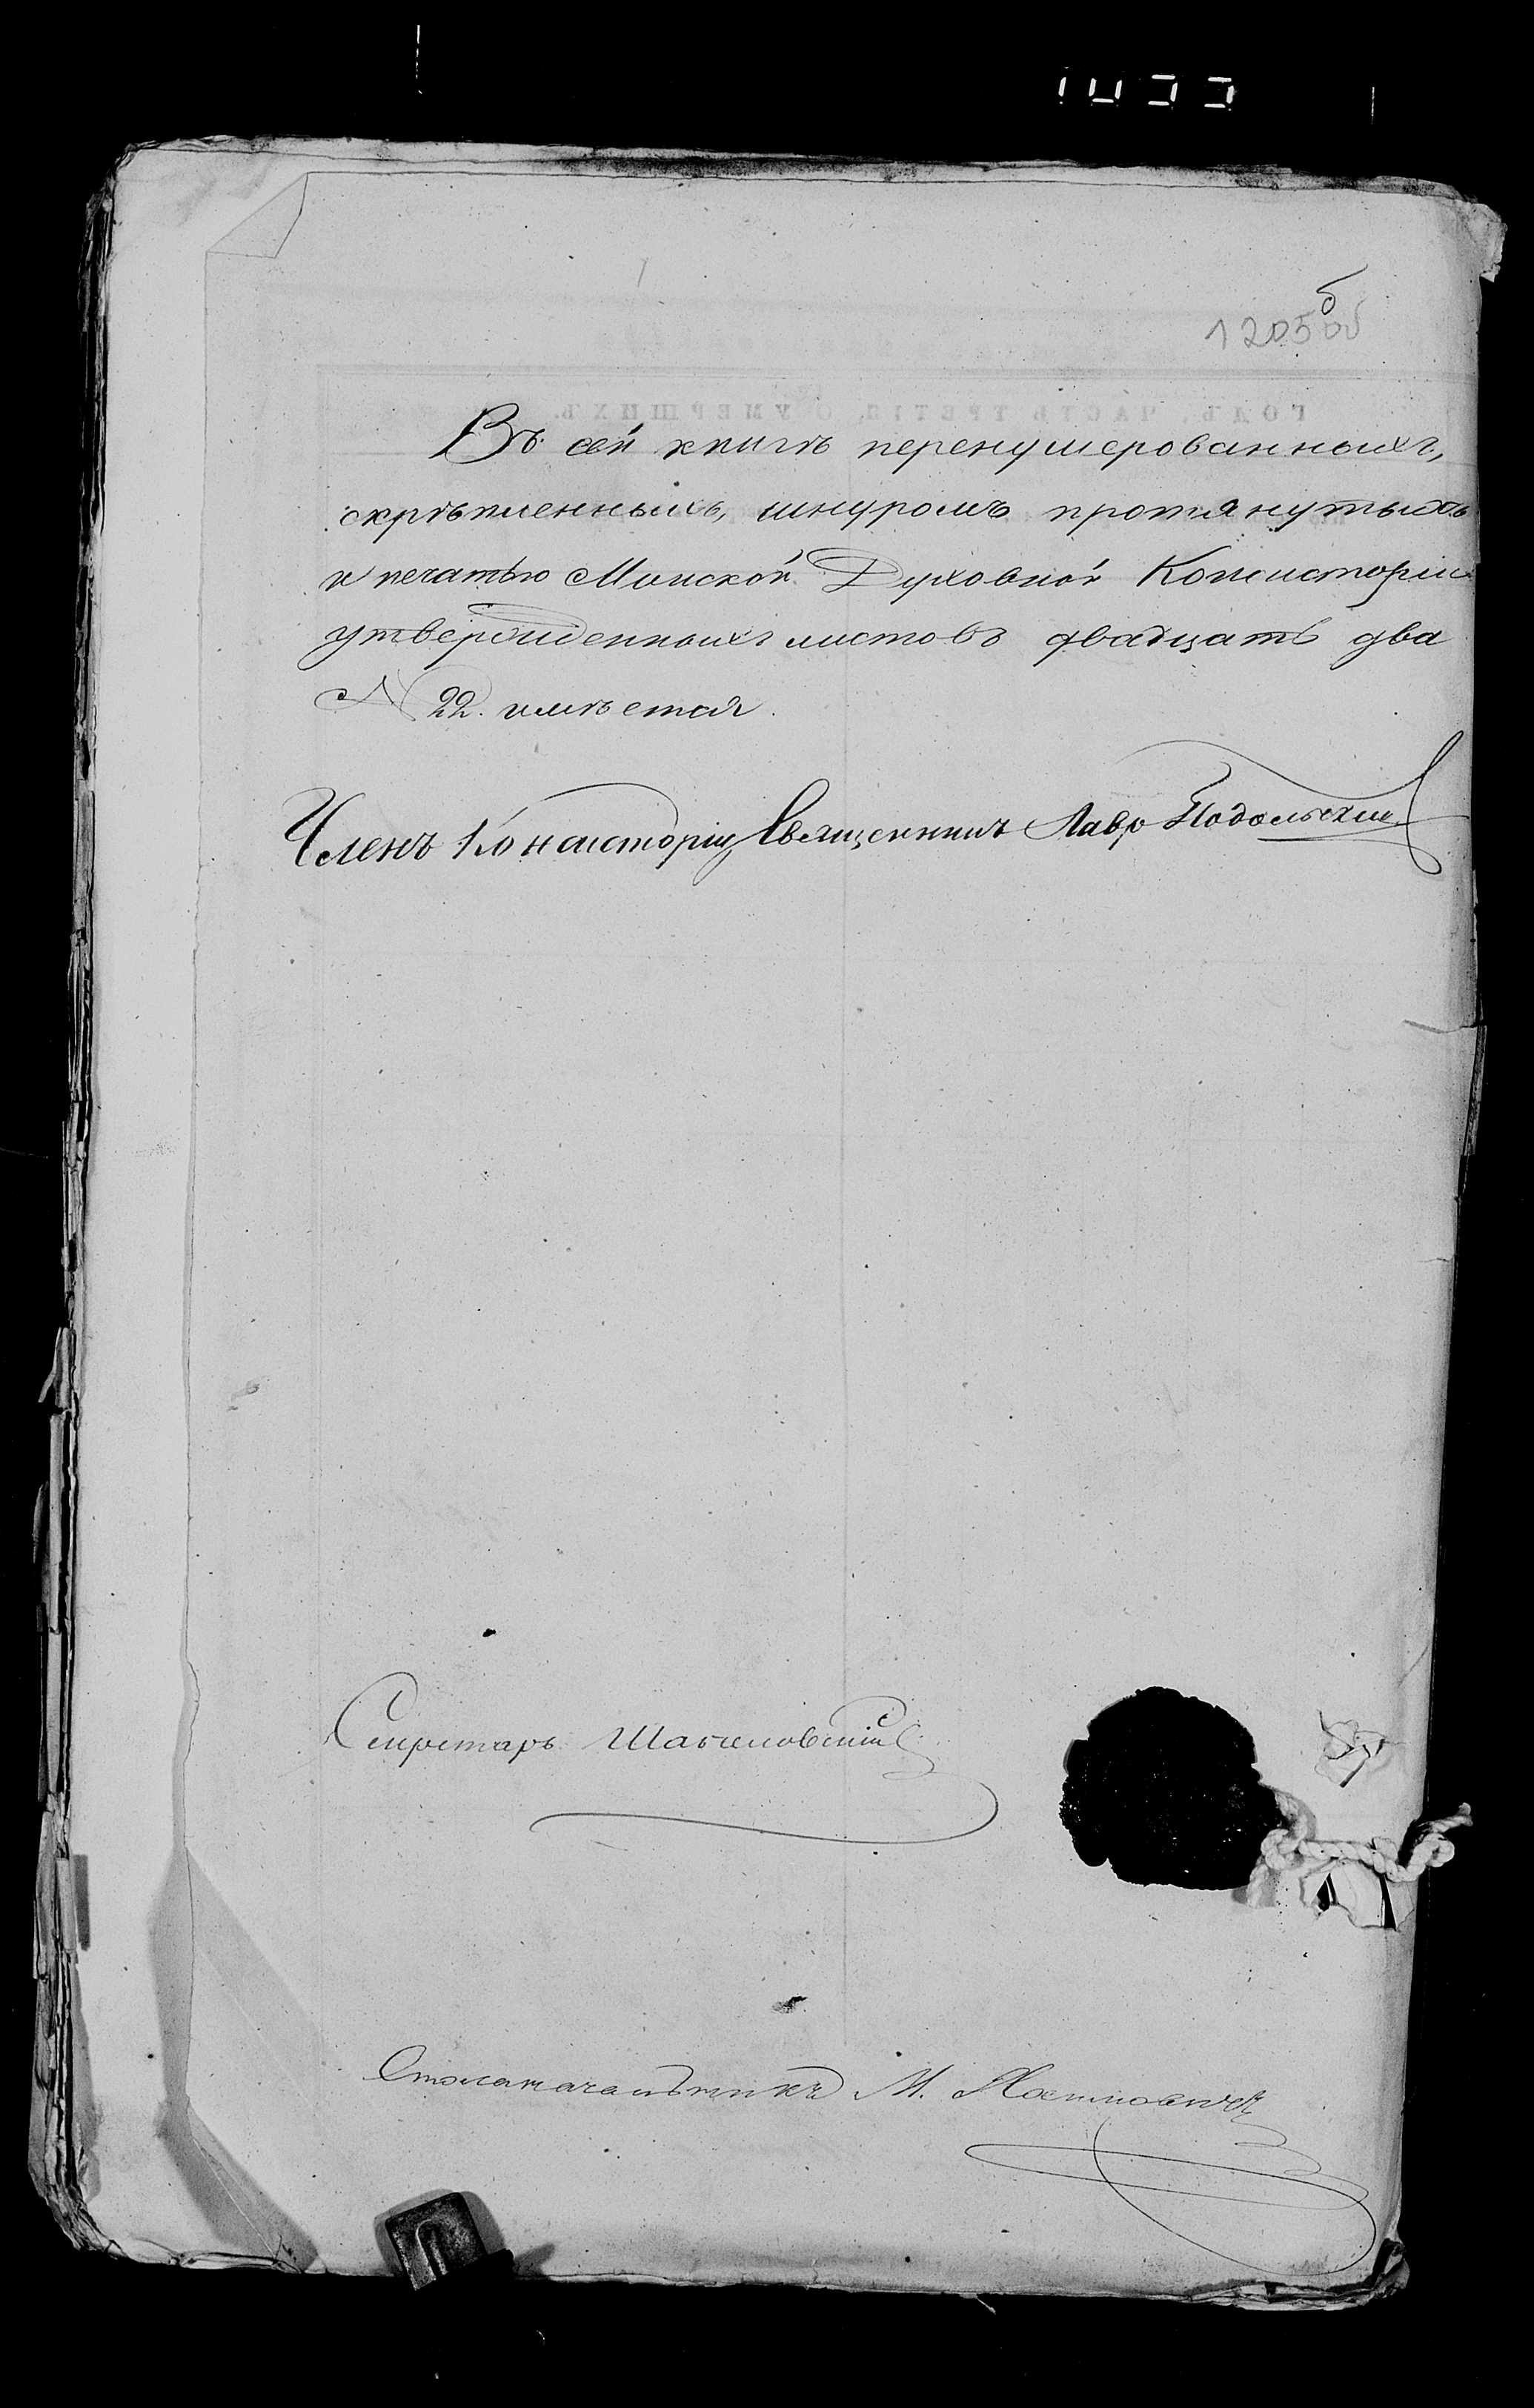 1205 об
Въ сей книгѣ перенумерованныхъ,
скрѣпленныхъ, шнуромъ протянутыхъ
и печатью Минской Духовной Консисторіи
утвержденныхъ листовъ двадцать два
№ 22. имѣется.
Членъ Консисторіи, Священникъ Лавр Подольскій
Секретарь
Столоначальникъ М.
ГОДЪ, ЧАСТЬ ТРЕТІЯ, О УМЕРШИХЪ.